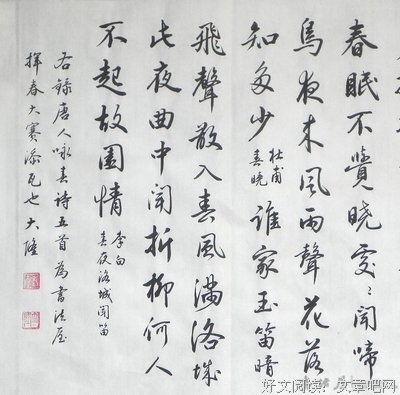 春眠不覺曉處々聞啼
鳥夜来風雨聲花落
知多少
杜甫
春曉
誰家玉笛暗
飛聲散入春風滿洛城
此夜曲中聞折柳何人
不起故園情
李白
春夜洛城聞笛
右錄唐人咏春诗五首為書法屋
揮春大賽添瓦也 大隆
好文阅读：文章吧网